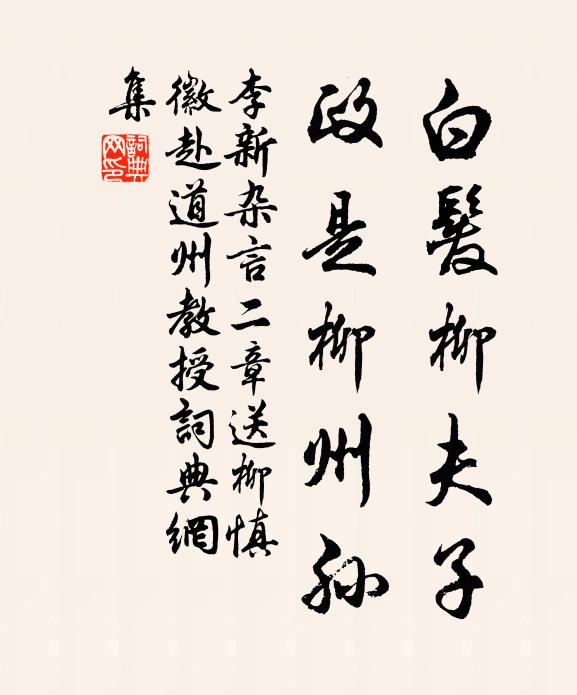 白髮柳夫子
政是柳州孫
李新杂言二章送柳慎
徽赴道州教授詞典網
集
詞典
网印